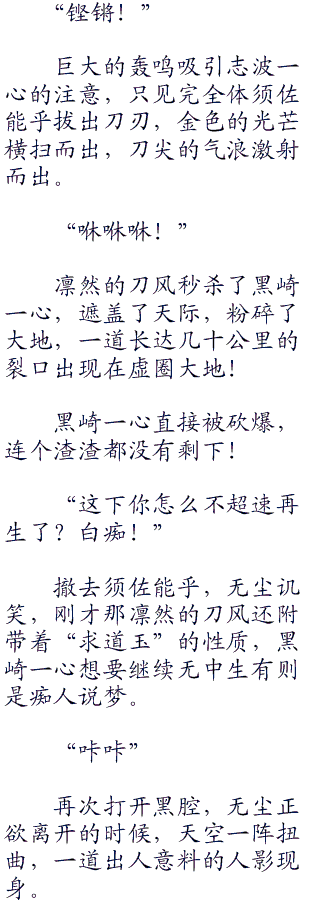 “铿锵！”
巨大的轰鸣吸引志波一
心的注意，只见完全体须佐
能乎拔出刀刃，金色的光芒
横扫而出，刀尖的气浪激射
而出。
“咻咻咻！”
凛然的刀风秒杀了黑崎
一心，遮盖了天际，粉碎了
大地，一道长达几十公里的
裂口出现在虚圈大地！
黑崎一心直接被砍爆，
连个渣渣都没有剩下！
“这下你怎么不超速再
生了？白痴！”
撤去须佐能乎，无尘讥
笑，刚才那凛然的刀风还附
带着“求道玉”的性质，黑
崎一心想要继续无中生有则
是痴人说梦。
“咔咔”
再次打开黑腔，无尘正
欲离开的时候，天空一阵扭
曲，一道出人意料的人影现
身。